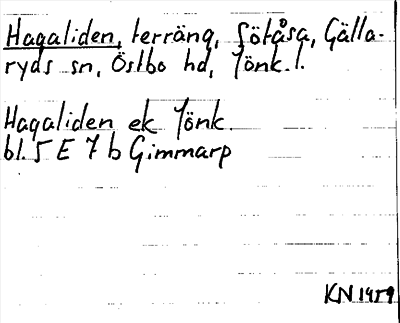 Hagaliden, terräng, Götåsa, Gälla-
ryds sn, Östbo hd, Jönk. l.
Hagaliden ek Jönk.
bl. 5 E 7 b Gimmarp
KN 1959